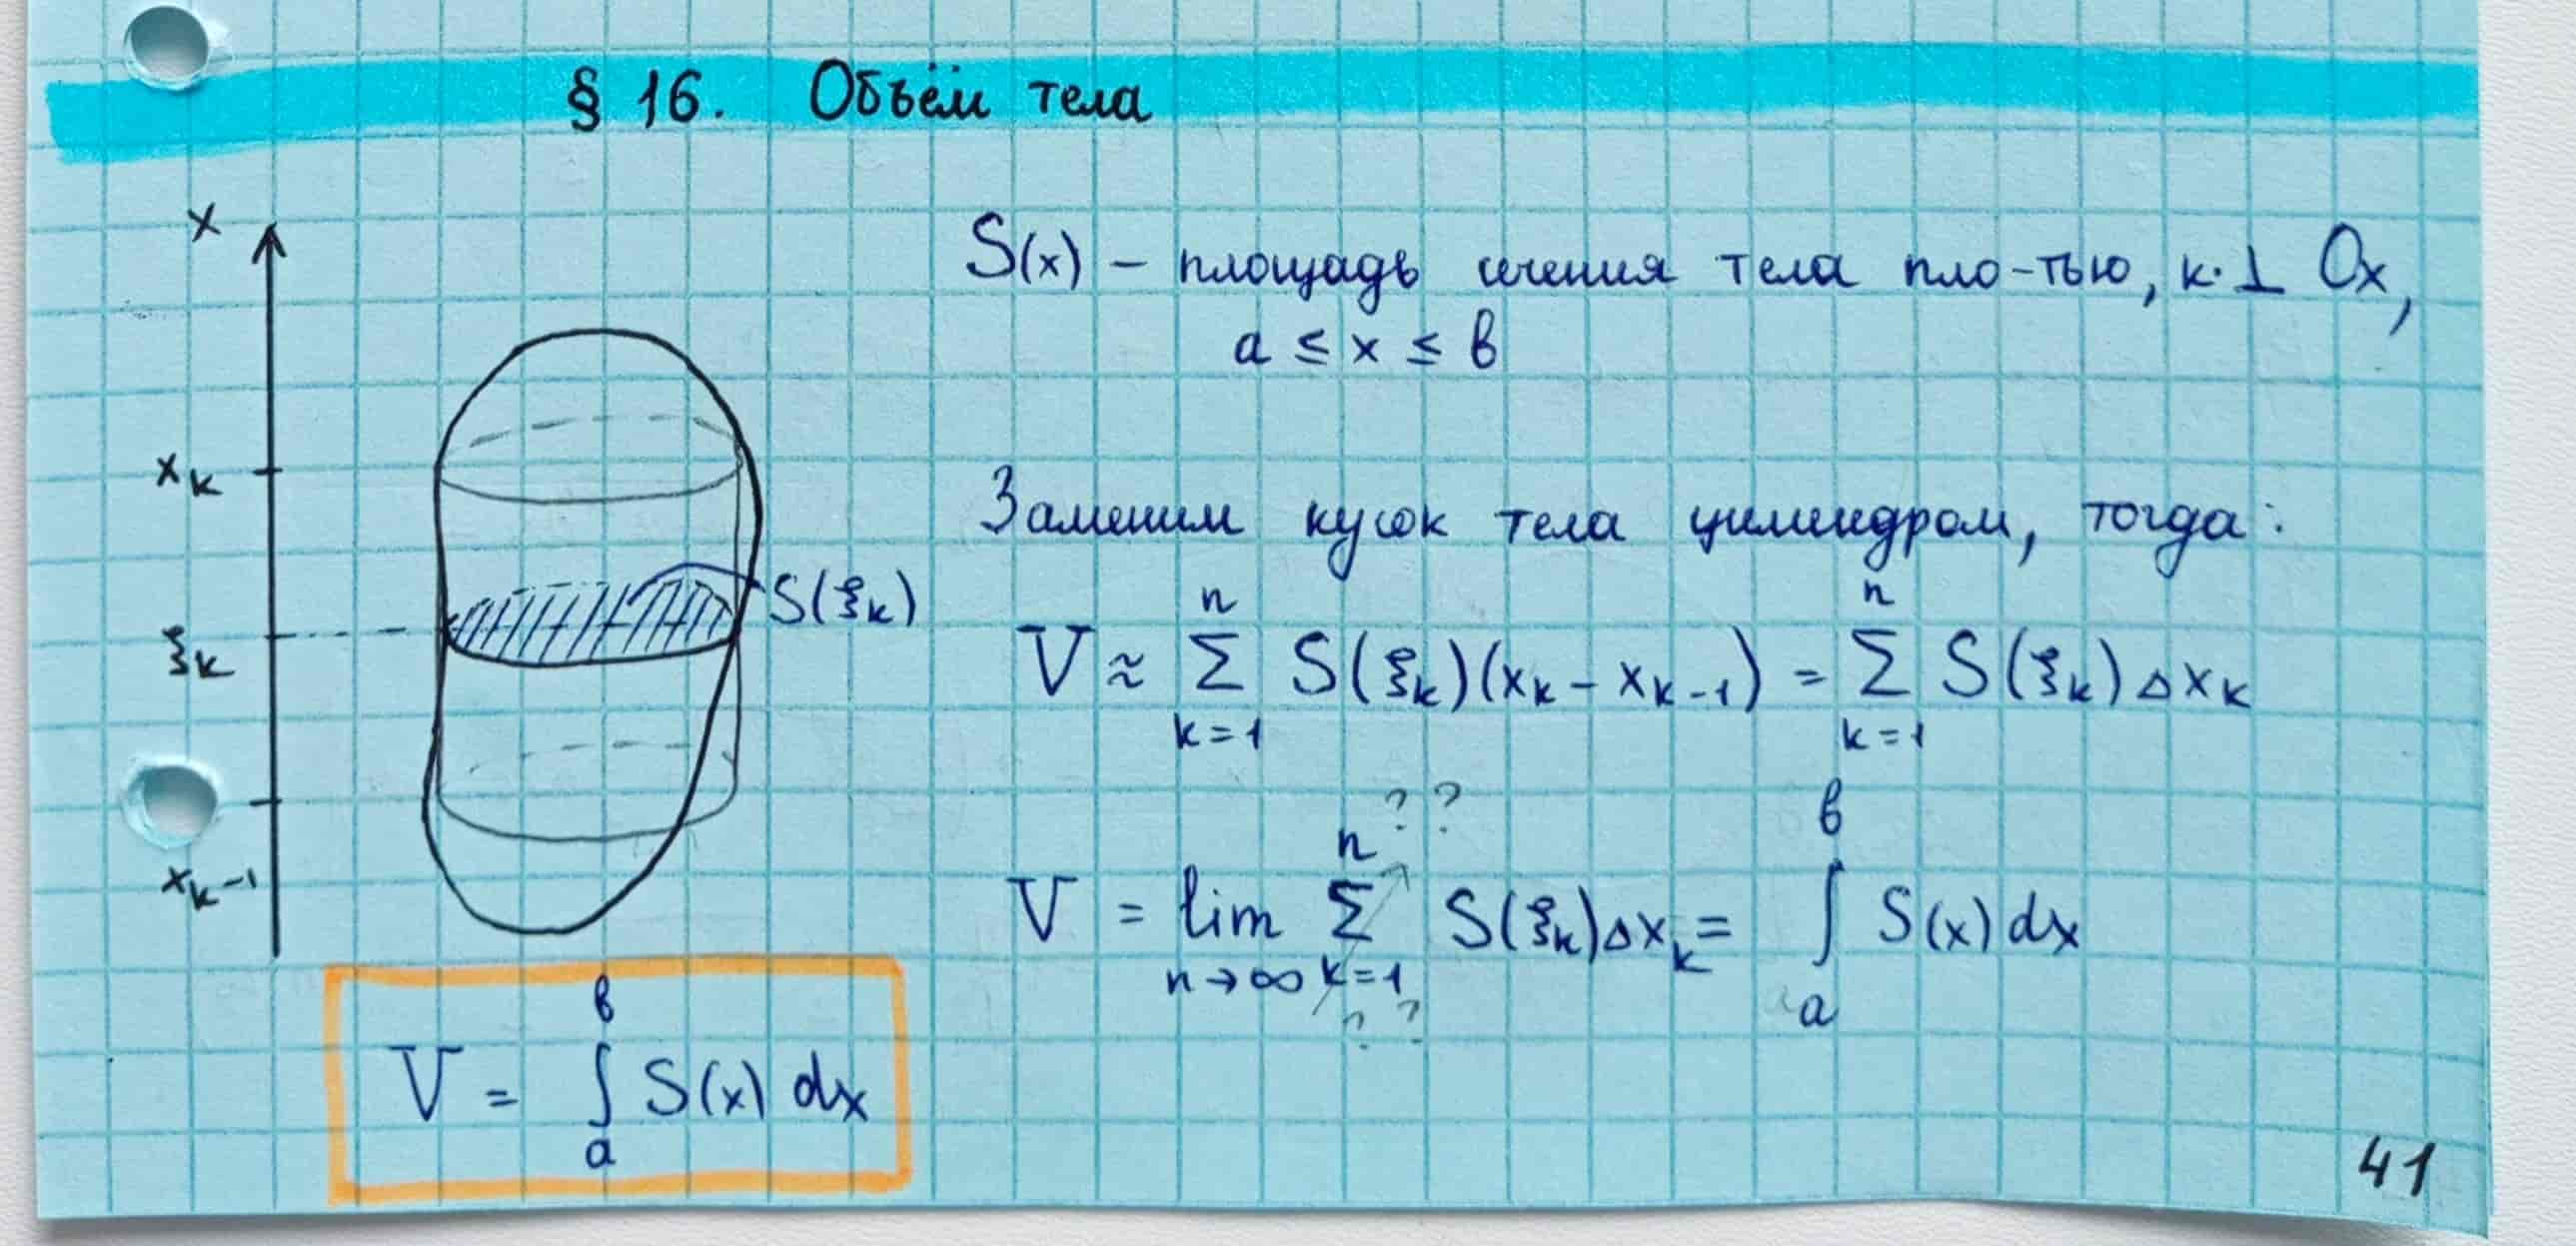 § 16. Объём тела
x
S(x) – площадь сечения тела пло-тью, к. ⊥ Ox,
a ≤ x ≤ b
x_k
Заменим кусок тела цилиндром, тогда:
S(ξ_k)
ξ_k
V ≈ ∑_{k=1}^{n} S(ξ_k)(x_k – x_{k-1}) = ∑_{k=1}^{n} S(ξ_k) Δx_k
? ?
x_{k-1}
V = lim_{n→∞} ∑_{k=1}^{n} S(ξ_k)Δx_k = ∫_a^b S(x) dx
? ?
V = ∫_a^b S(x) dx
41